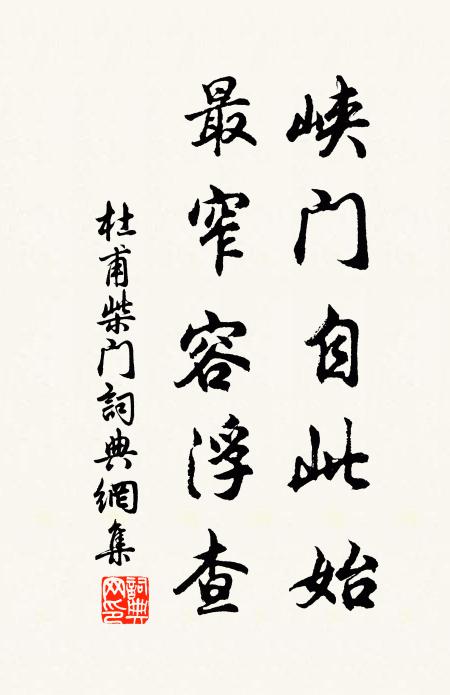 峡门自此始
最窄容浮查
杜甫柴门詞典網集
詞典网印